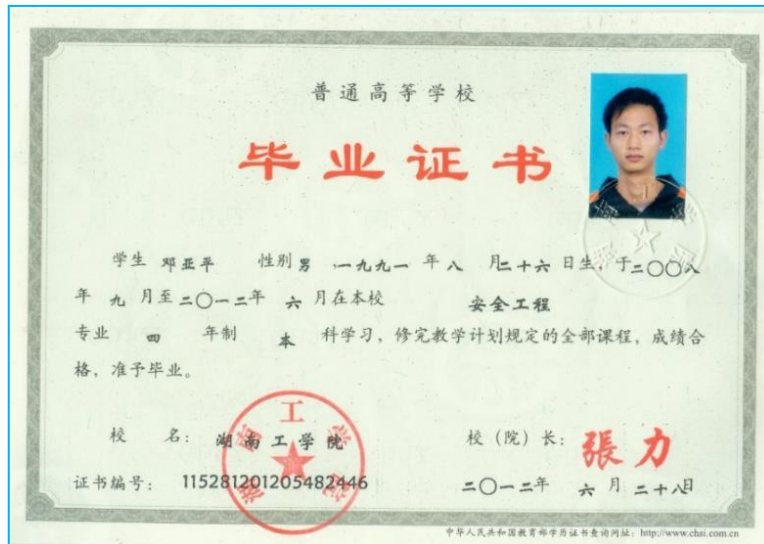 普通高等学校
毕业证书
学生 邓亚平 性别 男 一九九一 年 八 月 二十六 日生, 于 二〇〇八
年 九 月至 二〇一二 年 六 月在本校 安全工程
专业 四 年制 本 科学习, 修完教学计划规定的全部课程, 成绩合
格, 准予毕业。
校 名: 湖南工学院 校（院）长: 張力
证书编号: 115281201205482446 二〇一二年 六 月 二十八日
湖南工学院
中华人民共和国教育部学历证书查询网址: http://www.chsi.com.cn